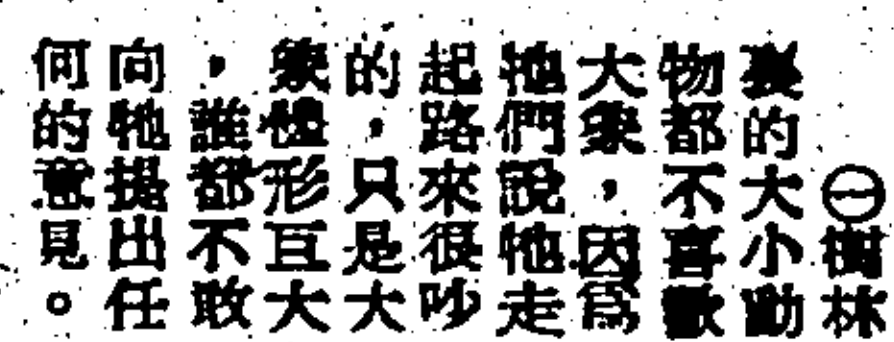 ㊀樹林
裏的大小動
物都不喜歡
大象，因為
牠們說牠走
起路來很吵
的，只是大
象體形巨大
，誰都不敢
向牠提出任
何的意見。